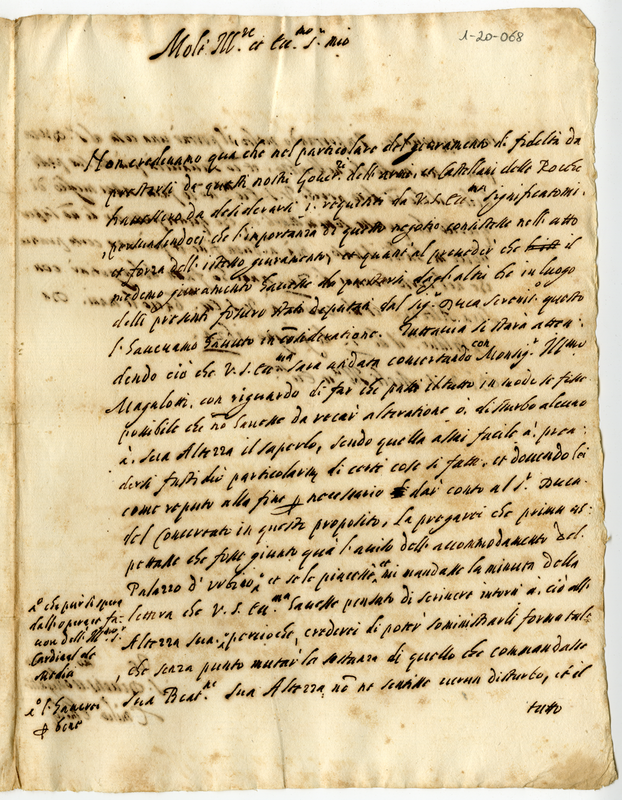 1-20-068
Molt' Ill.re et Ecc.mo S.r mio
Non credevamo qua che nel particolare del giuramento di fedeltà da
prestarsi da questi nostri Gover.ri dell'armi, et Castellani delle Rocche
havessero da desiderarsi i requisiti da V.S. Ecc.ma significatomi,
persuadendoci che l'importanza di questo negotio consistesse nell'atto
et forza dell'istesso giuramento, et quanto al preceder che il
medemo giuramento havesse da prestarsi dagl'altri che in luogo
delli presenti fossero stati deputati dal sig.r Duca Sereniss.o questo
l'havevamo havuto in consideratione. Tuttavia si starà atten:
dendo ciò che V.S. Ecc.ma sarà andata concertando con Monsig.r Ill.mo
Magalotti, con riguardo di far che passi il tutto in modo se fosse
possibile che nō havesse da recar alteratione ò disturbo alcuno
à Sua Altezza il saperlo, sendo quella assai facile à pren:
dersi fastidio particolarm.te di coste cose si fatte, et dovendo lei
come reputo alla fine necessario dar conto al S.r Duca
del concertato in questo proposito, la pregarei che prima as:
pettasse che fosse giunto quà l'aviso dell'accommodamento del
Palazzo d'Urbino, et se le piacesse, mi mandasse la minuta della
lettera che V.S. Ecc.ma havesse pensato di scrivere intorno à ciò all'
Altezza Sua, perciochè, crederei di poter somministrarli forma tale
che senza punto mutar la sostanza di quello che commandasse
Sua Beat.ne Sua Altezza nō ne sentisse verun disturbo, et il
tutto
che pur si spera
dall'operare fa:
vor dell' Ill.mo S.r
Cardinal de
Medici
l'haverei
p bene